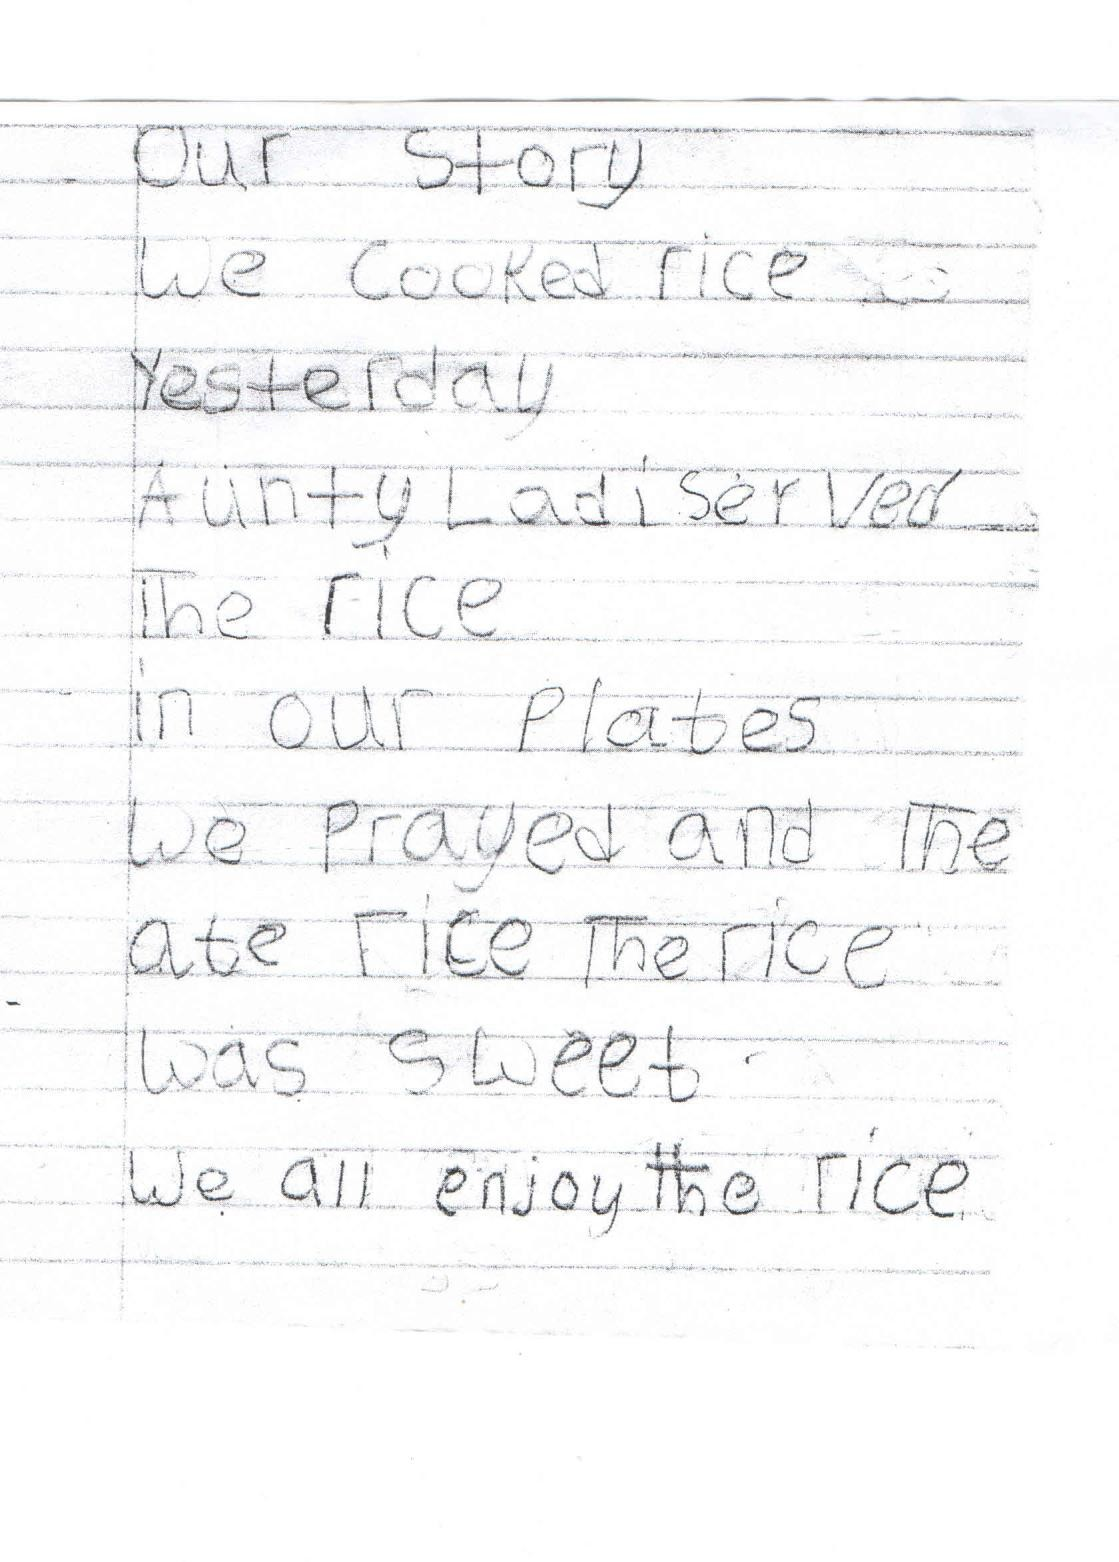 Our Story
We Cooked rice
Yesterday
Aunty Ladi served
The rice
in our Plates
We Prayed and The
ate rice The rice
was sweet.
We all enjoy the rice